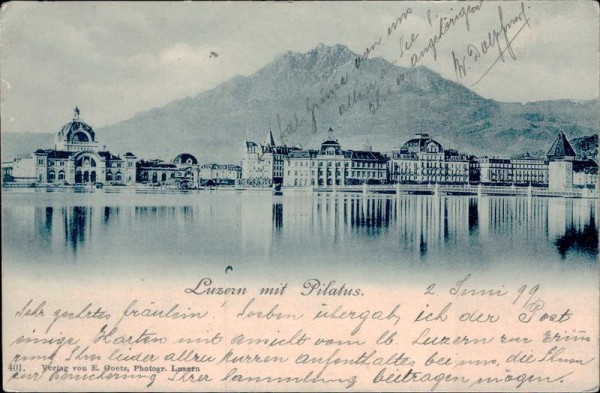 Hal. Grüsse von uns
allen an Sie &
Ihre w. angehörigen
W. Dolpf
Luzern mit Pilatus.
2. Juni 99
Sehr geehrtes fräulein! Soeben übergab ich der Post
einige Karten mit ansicht vom lb. Luzern zur Erinne
rung Ihres leider allzu kurzen aufenthaltes bei uns, die Ihnen
zur Bereicherung Ihrer Sammlung beitragen mögen.
401. Verlag von E. Goetz, Photogr. Luzern